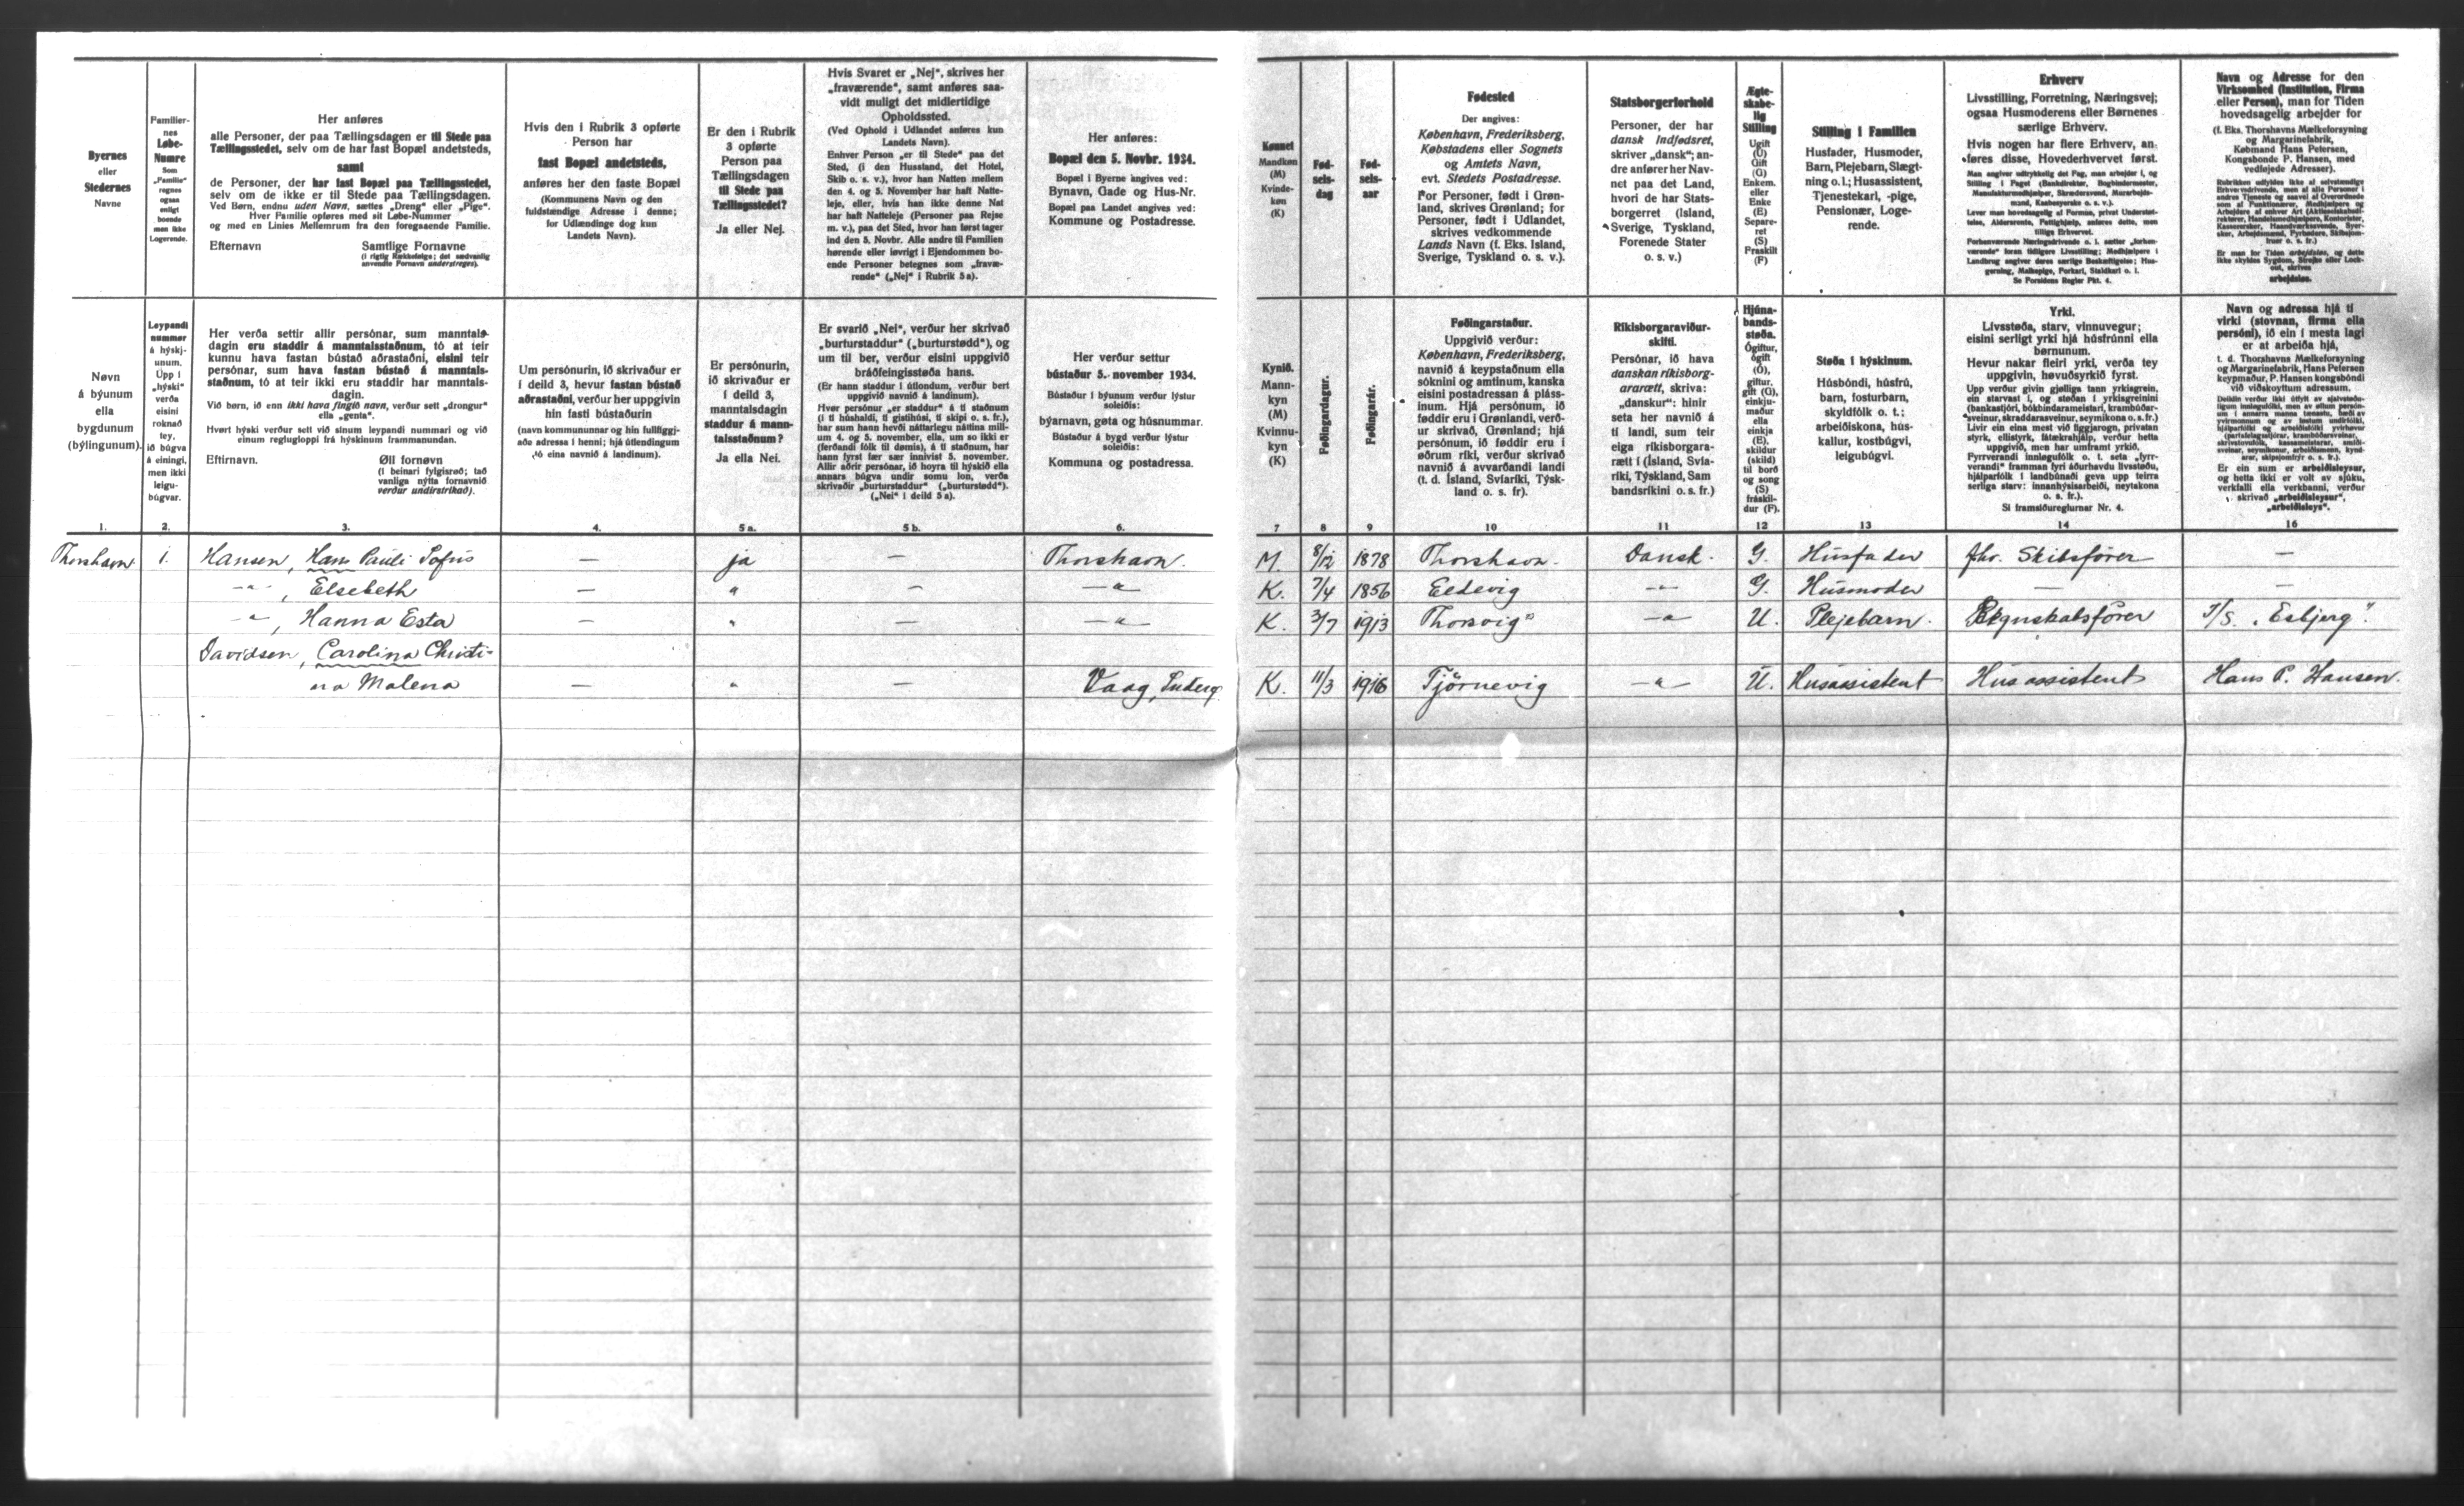 Byernes
eller
Stedernes
Navne
Familier-
nes
Løbe-
Numre
Som
„Familie"
regnes
ogsaa
enligt
boende
men ikke
Logerende.
Her anføres
alle Personer, der paa Tællingsdagen er til Stede paa
Tællingsstedet, selv om de har fast Bopæl andetsteds,
samt
de Personer, der har fast Bopæl paa Tællingsstedet,
selv om de ikke er til Stede paa Tællingsdagen.
Ved Børn, endnu uden Navn, sættes „Dreng" eller „Pige".
Hver Familie opføres med sit Løbe-Nummer
og med en Linies Mellemrum fra den foregaaende Familie.
Efternavn Samtlige Fornavne
(i rigtig Rækkefølge; det sædvanlig
anvendte Fornavn understreges).
Hvis den i Rubrik 3 opførte
Person har
fast Bopæl andetsteds,
anføres her den faste Bopæl
(Kommunens Navn og den
fuldstændige Adresse i denne;
for Udlændinge dog kun
Landets Navn).
Er den i Rubrik
3 opførte
Person paa
Tællingsdagen
til Stede paa
Tællingsstedet?
Ja eller Nej.
Hvis Svaret er „Nej", skrives her
„fraværende", samt anføres saa-
vidt muligt det midlertidige
Opholdssted.
(Ved Ophold i Udlandet anføres kun
Landets Navn).
Enhver Person „er til Stede" paa det
Sted, (i den Husstand, det Hotel,
Skib o. s. v.), hvor han Natten mellem
den 4. og 5. November har haft Natte-
leje, eller, hvis han ikke denne Nat
har haft Natteleje (Personer paa Rejse
m. v.), paa det Sted, hvor han først tager
ind den 5. Novbr. Alle andre til Familien
hørende eller iøvrigt i Ejendommen bo-
ende Personer betegnes som „fravæ-
rende" („Nej" i Rubrik 5a).
Her anføres:
Bopæl den 5. Novbr. 1934.
Bopæl i Byerne angives ved:
Bynavn, Gade og Hus-Nr.
Bopæl paa Landet angives ved:
Kommune og Postadresse.
Kønnet
Mandkøn
(M)
Kvinde-
køn
(K)
Fød-
sels-
dag
Fød-
sels-
aar
Fødested
Der angives:
København, Frederiksberg,
Købstadens eller Sognets
og Amtets Navn,
evt. Stedets Postadresse.
For Personer, født i Grøn-
land, skrives Grønland; for
Personer, født i Udlandet,
skrives vedkommende
Lands Navn (f. Eks. Island,
Sverige, Tyskland o. s. v.).
Statsborgerforhold
Personer, der har
dansk Indfødsret,
skriver „dansk"; an-
dre anfører her Nav-
net paa det Land,
hvori de har Stats-
borgerret (Island,
Sverige, Tyskland,
Forenede Stater
o. s. v.)
Ægte-
skabe-
lig
Stilling
Ugift
(U)
Gift
(G)
Enkem.
eller
Enke
(E)
Separe-
ret
(S)
Fraskilt
(F)
Stilling i Familien
Husfader, Husmoder,
Barn, Plejebarn, Slægt-
ning o. l.; Husassistent,
Tjenestekarl, -pige,
Pensionær, Loge-
rende.
Erhverv
Livsstilling, Forretning, Næringsvej;
ogsaa Husmoderens eller Børnenes
særlige Erhverv.
Hvis nogen har flere Erhverv, an-
føres disse, Hovederhvervet først.
Man angiver udtrykkelig det Fag, man arbejder i, og
Stilling i Faget (Bankdirektør, Bogbindermester,
Manufakturmedhjælper, Skrædersvend, Murarbejds-
mand, Kasbesperske o. s. v.).
Lever man hovedsagelig af Formue, privat Understøt-
telse, Aldersrente, Fattighjælp, anføres dette, men
tillige Erhvervet.
Forhenværende Næringsdrivende o. l. sætter „forhen-
værende" foran tidligere Livsstilling; Medhjælpere i
Landbrug angiver deres særlige Beskæftigelse; Hus-
gerning, Malkepige, Forkarl, Staldkarl o. l.
Se Forsidens Regler Pkt. 4.
Navn og Adresse for den
Virksomhed (Institution, Firma
eller Person), man for Tiden
hovedsagelig arbejder for
(f. Eks. Thorshavns Mælkeforsyning
og Margarinefabrik,
Købmand Hans Petersen,
Kongsbonde P. Hansen, med
vedføjede Adresser).
Er man for Tiden arbejdsløs, og dette
ikke skyldes Sygdom, Strejke eller Lock-
out, skrives
arbejdsløs.
Nøvn
á býunum
ella
bygdunum
(býlingunum).
Leypandi
nummør
á hýskj-
unum.
Upp í
„hýski"
verða
eisini
roknað
tey,
ið búgva
á einingi,
men ikki
leigu-
búgvar.
Her verða settir allir persónar, sum manntals-
dagin eru staddir á manntalsstaðnum, tó at teir
kunnu hava fastan bústað aðrastaðni, eisini teir
persónar, sum hava fastan bústað á manntals-
staðnum, tó at teir ikki eru staddir har manntals-
dagin.
Við børn, ið enn ikki hava fingið navn, verður sett „drongur"
ella „genta".
Hvørt hýski verður sett við sínum leypandi nummari og við
einum reglugloppi frá hýskinum frammanundan.
Eftirnavn. Øll fornøvn
(í beinari fylgisrøð; tað
vanliga nýtta fornavnið
verður undirstrikað).
Um persónurin, ið skrivaður er
í deild 3, hevur fastan bústað
aðrastaðni, verður her uppgivin
hin fasti bústaðurin
(navn kommununnar og hin fullfíggj-
aða adressa í henni; hjá útlendingum
tó eina navnið á landinum).
Er persónurin,
ið skrivaður er
í deild 3,
manntalsdagin
staddur á mann-
talsstaðnum?
Ja ella Nei.
Er svarið „Nei", verður her skrivað
„burturstaddur" („burturstødd"), og
um til ber, verður eisini uppgivið
bráðfeingisstøða hans.
(Er hann staddur í útlondum, verður bert
uppgivið navnið á landinum).
Hvør persónur „er staddur" á tí staðnum
(í tí húshaldi, tí gistihúsi, tí skipi o. s. fr.),
har sum hann hevði náttarlegu náttina mill-
um 4. og 5. november, ella, um so ikki er
(ferðandi fólk til dømis), á tí staðnum, har
hann fyrst fær sær innivist 5. november.
Allir aðrir persónar, ið hoyra til hýskið ella
annars búgva undir somu lon, verða
skrivaðir „burturstaddur" („burturstødd").
(„Nei" í deild 5a).
Her verður settur
bústaður 5. november 1934.
Bústaður í býunum verður lýstur
soleiðis:
býarnavn, gøta og húsnummar.
Bústaður á bygd verður lýstur
soleiðis:
Kommuna og postadressa.
Kynið.
Mann-
kyn
(M)
Kvinnu-
kyn
(K)
Føðingardagur.
Føðingarár.
Føðingarstaður.
Uppgivið verður:
København, Frederiksberg,
navnið á keypstaðnum ella
sóknini og amtinum, kanska
eisini postadressan á pláss-
inum. Hjá persónum, ið
føddir eru í Grønlandi, verð-
ur skrivað, Grønland; hjá
persónum, ið føddir eru í
øðrum ríki, verður skrivað
navnið á avvarðandi landi
(t. d. Ísland, Svíaríki, Týsk-
land o. s. fr).
Ríkisborgaraviður-
skifti.
Persónar, ið hava
danskan ríkisborg-
ararætt, skriva:
„danskur": hinir
seta her navnið á
tí landi, sum teir
eiga ríkisborgara-
rætt í (Ísland, Svía-
ríki, Týskland, Sam
bandsríkini o. s. fr.)
Hjúna-
bands-
støða.
Ógiftur,
ógift
(Ó),
giftur,
gift (G),
einkju-
maður
ella
einkja
(E),
skildur
(skild)
til borð
og song
(S)
fráskil-
dur (F).
Støða í hýskinum.
Húsbóndi, húsfrú,
barn, fosturbarn,
skyldfólk o. t.;
arbeiðiskona, hús-
kallur, kostbúgvi,
leigubúgvi.
Yrki.
Livsstøða, starv, vinnuvegur;
eisini serligt yrki hjá húsfrúnni ella
børnunum.
Hevur nakar fleiri yrki, verða tey
uppgivin, høvuðsyrkið fyrst.
Upp verður givin gjølliga tann yrkisgrein,
ein starvast í, og støðan í yrkisgreinini
(bankastjóri, bókbindarameistari, krambúðar-
sveinur, skraddarasveinur, seymikona o. s. fr.)
Livir ein eina mest við figgjarogn, privatan
styrk, ellistyrk, fátækrahjálp, verður hetta
uppgivið, men har umframt yrkið.
Fyrrverandi innløgufólk o. t. seta „fyrr-
verandi" framman fyri áðurhavdu livsstøðu,
hjálparfólk í landbúnaði geva upp teirra
serliga starv: innanhýsisarbeiði, neytakona
o. s. fr.).
Sí framsíðureglurnar Nr. 4.
Navn og adressa hjá tí
virki (stovnan, firma ella
persóni), ið ein í mesta lagi
er at arbeiða hjá,
t. d. Thorshavns Mælkeforsyning
og Margarinefabrik, Hans Petersen
keypmaður, P. Hansen kongsbóndi
við viðskoyttum adressum.
Er ein sum er arbeiðsleysur,
og hetta ikki er volt av sjúku,
verkfalli ella verkbanni, verður
skrivað „arbeiðsleysur",
„arbeiðsleys".
1. 2. 3. 4. 5a. 5b. 6. 7 8 9 10 11 12 13 14 16
Thorshavn 1. Hansen, Hans Pauli Sofus — ja — Thorshavn. M. 8/12 1878 Thorshavn. Dansk. G. Husfader fhv. Skibsfører —
—"—, Elsebeth — " — —"— K. 7/4 1856 Eldevig —"— G. Husmoder — —
—"—, Hanna Esta — " — —"— K. 3/7 1913 Thorsvig —"— U. Plejebarn. Regnskabsfører T/S. „Esbjerg".
Davidsen, Carolina Christi-
na Malena — " — Vaag, Suderø K. 11/3 1916 Tjørnevig —"— U. Husassistent Husassistent Hans P. Hansen.